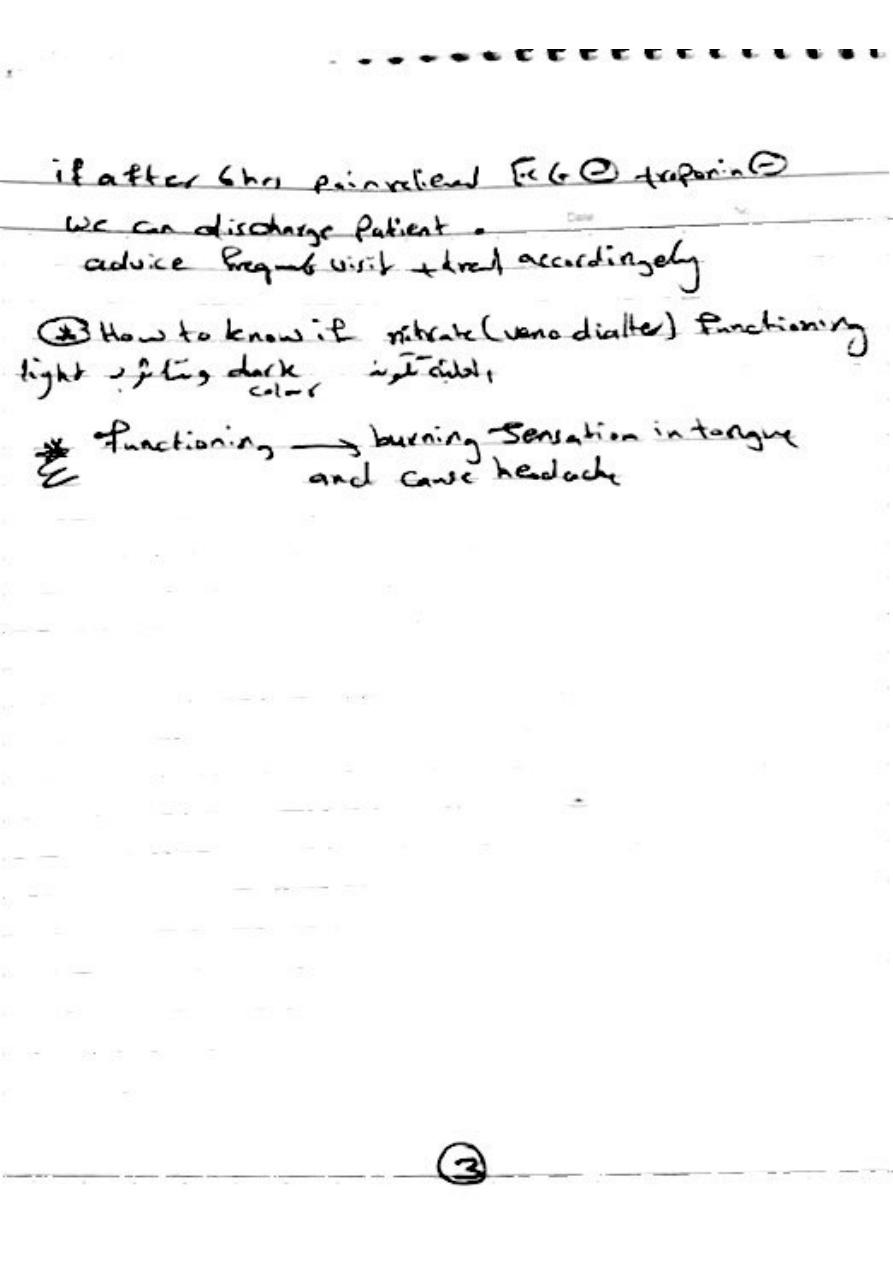 if after 6hrs pain relieved ECG ⊖ troponin ⊖
Date
we can discharge Patient .
advice frequent visit + treat accordingely
* How to know if nitrate (veno dialter) functioning
dark color light
* functioning → burning Sensation in tongue
and cause headache
3